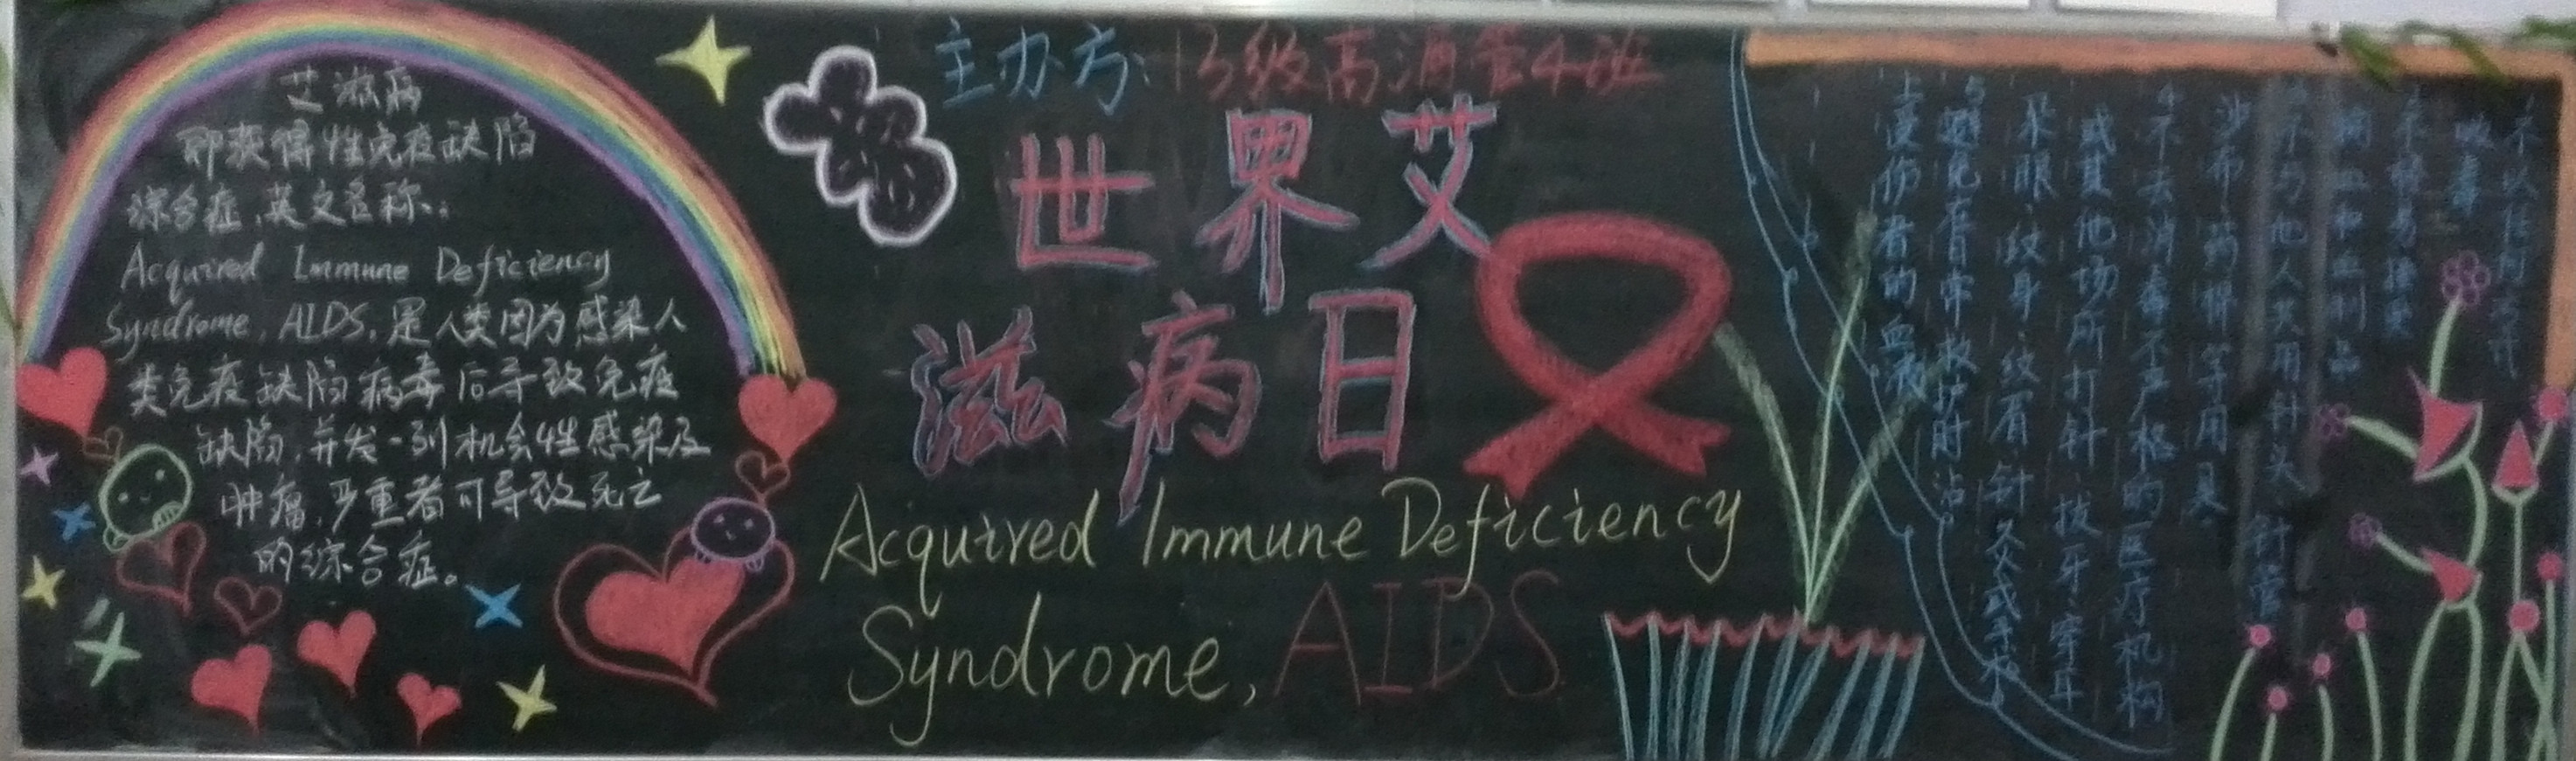 艾滋病
即获得性免疫缺陷
综合症,英文名称:
Acquired Immune Deficiency
Syndrome, AIDS,是人类因为感染人
类免疫缺陷病毒后导致免疫
缺陷,并发一列机会性感染及
肿瘤,严重者可导致死亡
的综合症。
主办方:13级高酒管4班
世界艾
滋病日
Acquired Immune Deficiency
Syndrome, AIDS
吸毒
输血和血制品
不与他人共用针头 针管
纱布 药棉等用具
不去消毒不严格的医疗机构
或其他场所打针 拔牙 穿耳
纹身 纹眉 针灸或手术
避免在日常救护时沾
受伤者的血液